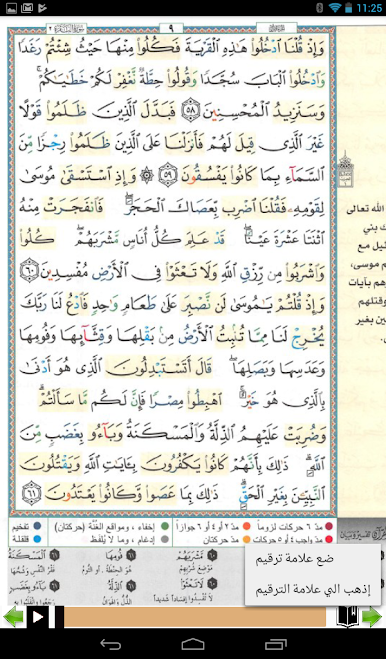 11:25
سورة البقرة ٢
٩
وَإِذْ قُلْنَا ٱدْخُلُوا۟ هَٰذِهِ ٱلْقَرْيَةَ فَكُلُوا۟ مِنْهَا حَيْثُ شِئْتُمْ رَغَدًا
وَٱدْخُلُوا۟ ٱلْبَابَ سُجَّدًا وَقُولُوا۟ حِطَّةٌ نَّغْفِرْ لَكُمْ خَطَٰيَٰكُمْ ۚ
وَسَنَزِيدُ ٱلْمُحْسِنِينَ ٥٨ فَبَدَّلَ ٱلَّذِينَ ظَلَمُوا۟ قَوْلًا
غَيْرَ ٱلَّذِى قِيلَ لَهُمْ فَأَنزَلْنَا عَلَى ٱلَّذِينَ ظَلَمُوا۟ رِجْزًا مِّنَ
ٱلسَّمَآءِ بِمَا كَانُوا۟ يَفْسُقُونَ ٥٩ ۞ وَإِذِ ٱسْتَسْقَىٰ مُوسَىٰ
لِقَوْمِهِۦ فَقُلْنَا ٱضْرِب بِّعَصَاكَ ٱلْحَجَرَ ۖ فَٱنفَجَرَتْ مِنْهُ
ٱثْنَتَا عَشْرَةَ عَيْنًا ۖ قَدْ عَلِمَ كُلُّ أُنَاسٍ مَّشْرَبَهُمْ ۖ كُلُوا۟
وَٱشْرَبُوا۟ مِن رِّزْقِ ٱللَّهِ وَلَا تَعْثَوْا۟ فِى ٱلْأَرْضِ مُفْسِدِينَ ٦٠
وَإِذْ قُلْتُمْ يَٰمُوسَىٰ لَن نَّصْبِرَ عَلَىٰ طَعَامٍ وَٰحِدٍ فَٱدْعُ لَنَا رَبَّكَ
يُخْرِجْ لَنَا مِمَّا تُنۢبِتُ ٱلْأَرْضُ مِنۢ بَقْلِهَا وَقِثَّآئِهَا وَفُومِهَا
وَعَدَسِهَا وَبَصَلِهَا ۖ قَالَ أَتَسْتَبْدِلُونَ ٱلَّذِى هُوَ أَدْنَىٰ
بِٱلَّذِى هُوَ خَيْرٌ ۚ ٱهْبِطُوا۟ مِصْرًا فَإِنَّ لَكُم مَّا سَأَلْتُمْ ۗ
وَضُرِبَتْ عَلَيْهِمُ ٱلذِّلَّةُ وَٱلْمَسْكَنَةُ وَبَآءُو بِغَضَبٍ مِّنَ
ٱللَّهِ ۗ ذَٰلِكَ بِأَنَّهُمْ كَانُوا۟ يَكْفُرُونَ بِـَٔايَٰتِ ٱللَّهِ وَيَقْتُلُونَ
ٱلنَّبِيِّۦنَ بِغَيْرِ ٱلْحَقِّ ۗ ذَٰلِكَ بِمَا عَصَوا۟ وَّكَانُوا۟ يَعْتَدُونَ ٦١
الله تعالى
ك بني
ئيل مع
م موسى،
هم بآيات
وقتلهم
ين بغير
مدّ ٦ حركات لزوماً مدّ ٢ أو ٤ أو ٦ جوازاً إخفاء، ومواقع الغُنَّة (حركتان) تفخيم
مدّ واجب ٤ أو ٥ حركات مدّ حركتان إدغام، وما لا يُلفَظ قلقلة
ضع علامة ترقيم
إذهب الي علامة الترقيم